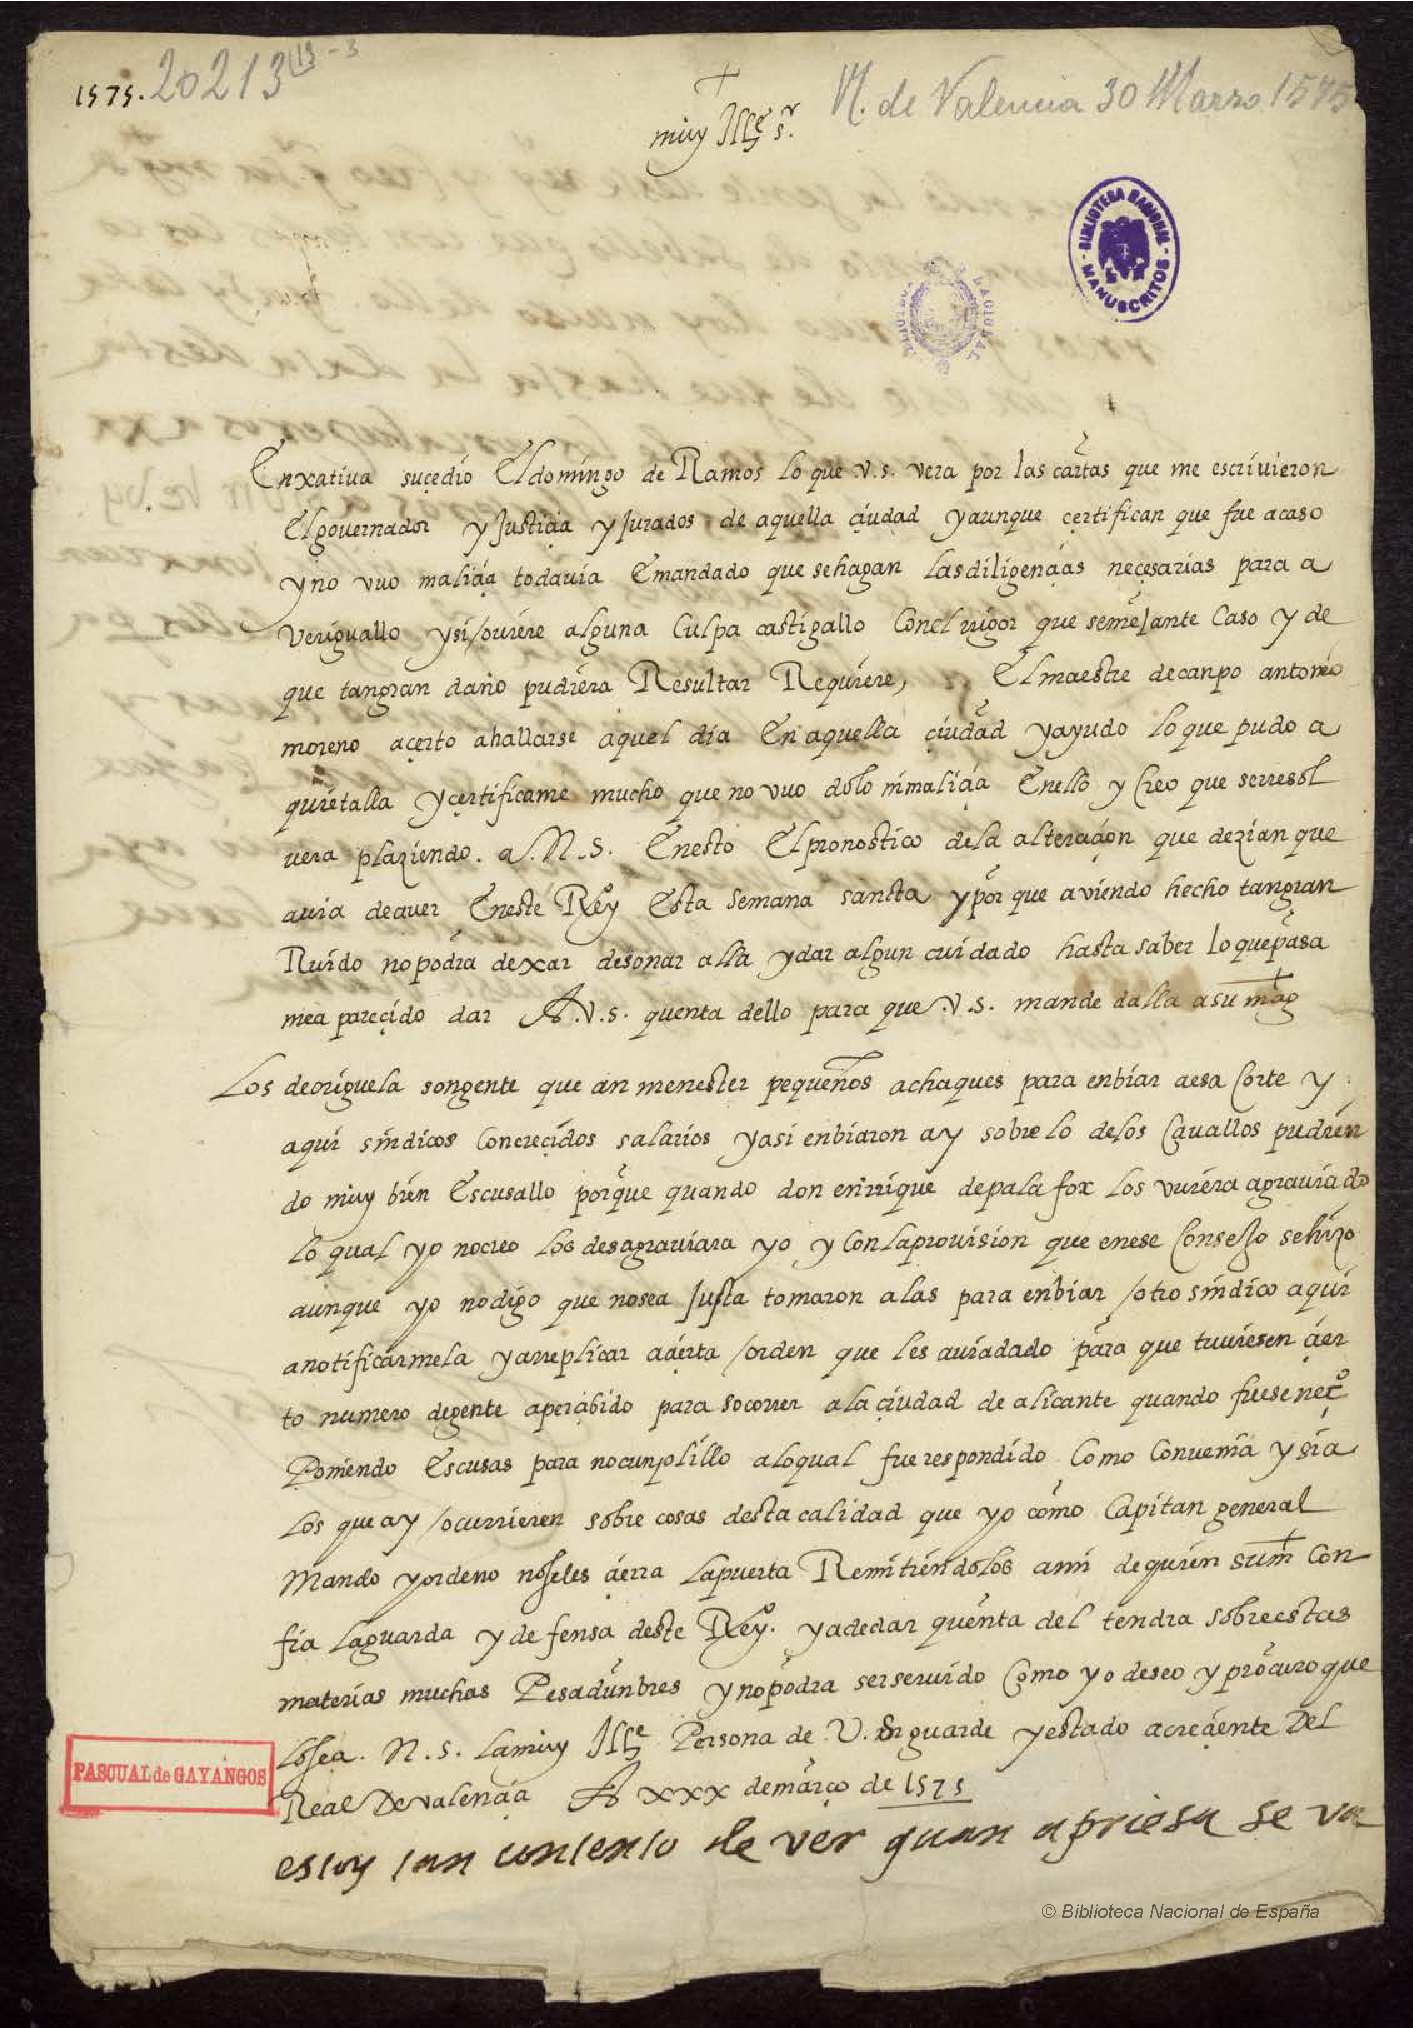 1575. 20213 13 - 3
V. de Valencia 30 Marzo 1575
+
muy Ille s.r
BIBLIOTECA NACIONAL
MANUSCRITOS
Enxativa sucedio El domingo de Ramos lo que v.s. vera por las cartas que me escriuieron
El gouernador y Justiçia y Jurados de aquella çiudad y aunque çertifican que fue acaso
y no vuo maliçia todauia E mandado que se hagan las diligençias neçesarias para a
veriguallo y si /ouiere alguna Culpa castigallo Con el rrigor que semejante Caso y de
que tan gran daño pudiera Resultar Requiere, El maestre de canpo antonio
moreno açerto a hallarse aquel dia En aquella çiudad y ayudo lo que pudo a
quietalla y çertificame mucho que no vuo dolo ni maliçia En ello y Creo que se rresol
vera plaziendo. a. N. S. En esto El pronostico de la alteraçion que dezian que
auia de auer En este Rey.o Esta semana sancta y por que aviendo hecho tan gran
Ruido no podra dexar de sonar alla y dar algun cuidado hasta saber lo que pasa
me a pareçido dar A. v. s. quenta dello para que .v. s. mande dalla a su mag
Los de origuela son gente que an menester pequeños achaques para enbiar a esa Corte y
aqui sindicos Con creçidos salarios y asi enbiaron ay sobre lo de los Cauallos pudien
do muy bien Escusallo porque quando don enrrique de palafox los vuiera agrauiado
lo qual yo no creo los desagrauiara yo y Con la prouision que en ese Consejo se hizo
aunque yo no digo que no sea Justa tomaron alas para enbiar /otro sindico aqui
a notificarmela y a rreplicar a çierta /orden que les auia dado para que tuuiesen çier
to numero de gente aperçibido para socorrer a la çiudad de alicante quando fuese neç.o
Poniendo Escusas para no cunplillo a lo qual fue respondido Como Conuenia y si a
los que ay /ocurrieren sobre cosas desta calidad que yo como Capitan general
Mando y ordeno no se les çierra la puerta Remitiendolos a mi de quien su m Con
fia la guarda y defensa deste Rey.o y a de dar quenta del tendra sobre estas
materias muchas Pesadunbres y no podra ser seruido Como yo deseo y procuro que
lo sea. N. S. la muy Ille Persona de V. S. guarde y estado acreçiente Del
Real De valençia A xxx de março de 1575
estoy tan contento de ver quan apriesa se va
PASCUAL de GAYANGOS
© Biblioteca Nacional de España